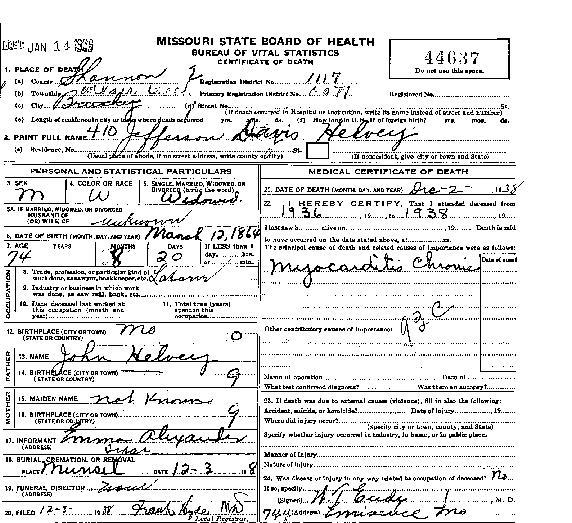 JAN 14 1939
MISSOURI STATE BOARD OF HEALTH
BUREAU OF VITAL STATISTICS
CERTIFICATE OF DEATH
44637
Do not use this space.
1. PLACE OF DEATH
(a) County Shannon Registration District No.
(b) Township Primary Registration District No. Registered No.
(c) City (d) Street No. St.
2. PRINT FULL NAME 410 Jefferson Davis Helvey
(a) Residence, No. St.
(Usual place of abode, if no street address, write county or city) (If nonresident, give city or town and State)
PERSONAL AND STATISTICAL PARTICULARS
3. SEX M 4. COLOR OR RACE W 5. SINGLE, MARRIED, WIDOWED, OR DIVORCED (write the word) Widowed
5A. IF MARRIED, WIDOWED, OR DIVORCED HUSBAND OF (OR) WIFE OF unknown
6. DATE OF BIRTH (MONTH, DAY, AND YEAR) March 12, 1864
7. AGE YEARS 74 MONTHS 8 DAYS 20 If LESS than 1 day, hrs. or min.
OCCUPATION
8. Trade, profession, or particular kind of work done, sawyer, bookkeeper, etc. Labor
9. Industry or business in which work was done, as saw mill, bank, etc.
10. Date deceased last worked at this occupation (month and year) 11. Total time (years) spent in this occupation
12. BIRTHPLACE (CITY OR TOWN) (STATE OR COUNTRY) Mo 0
FATHER
13. NAME John Helvey
14. BIRTHPLACE (CITY OR TOWN) (STATE OR COUNTRY) 9
MOTHER
15. MAIDEN NAME not known
16. BIRTHPLACE (CITY OR TOWN) (STATE OR COUNTRY) 9
17. INFORMANT (ADDRESS) Emma Alexander
18. BURIAL, CREMATION, OR REMOVAL
PLACE Munsel DATE 12-3 8
19. FUNERAL DIRECTOR (ADDRESS)
20. FILED 12-3- 38 Frank Hyde MD
Local Registrar.
MEDICAL CERTIFICATE OF DEATH
21. DATE OF DEATH (MONTH, DAY, AND YEAR) Dec-2- 1938
22. I HEREBY CERTIFY, That I attended deceased from
1936, 19 , to 1938, 19
I last saw h alive on , 19 . Death is said
to have occurred on the date stated above, at m.
The principal cause of death and related causes of importance were as follows:
Date of onset
Myocarditis Chronic
93c
Other contributory causes of importance:
Name of operation Date of
What test confirmed diagnosis? Was there an autopsy?
23. If death was due to external causes (violence), fill in also the following:
Accident, suicide, or homicide? Date of injury , 19
Where did injury occur?
(Specify city or town, county, and State)
Specify whether injury occurred in industry, in home, or in public place.
Manner of injury
Nature of injury
24. Was disease or injury in any way related to occupation of deceased? No
If so, specify
(Signed) , M. D.
(Address) Eminence Mo